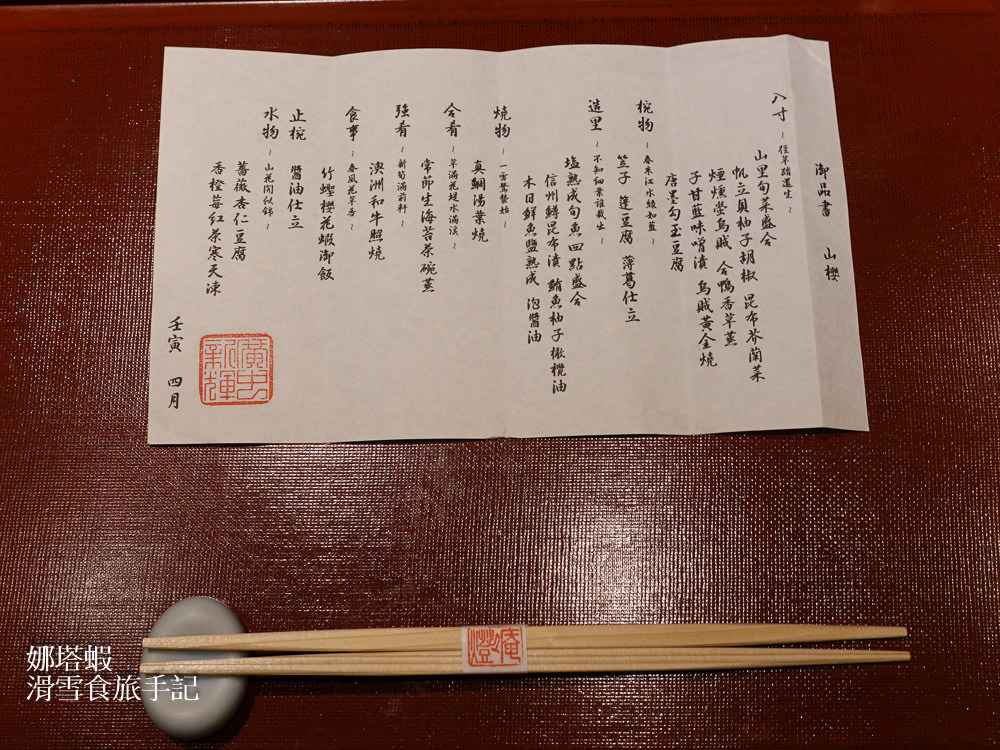 御品書　山櫻
八寸 ~徑草踏還生~
山里旬菜盛合
帆立貝柚子胡椒 昆布芥蘭菜
煙燻螢烏賊 合鴨香草蒸
子甘藍味噌漬 烏賊黃金燒
唐墨勾玉豆腐
椀物 ~春來江水綠如藍~
笠子 蓬豆腐 薄葛仕立
造里 ~不知細葉誰裁出~
塩熟成旬魚四點盛合
信州鱒昆布漬 鮪魚柚子橄欖油
本日鮮魚鹽熟成 泡醬油
燒物 ~一雷驚蟄始~
真鯛湯葉燒
合肴 ~草滿花堤水滿溪~
常節生海苔茶碗蒸
強肴 ~新筍滿前軒~
澳洲和牛照燒
食事 ~春風花草香~
竹蟶櫻花蝦御飯
止椀 醬油仕立
水物 ~山花開似錦~
薔薇杏仁豆腐
香橙莓紅茶寒天凍
壬寅 四月
廣史
新輝
澄庵
娜塔蝦
滑雪食旅手記